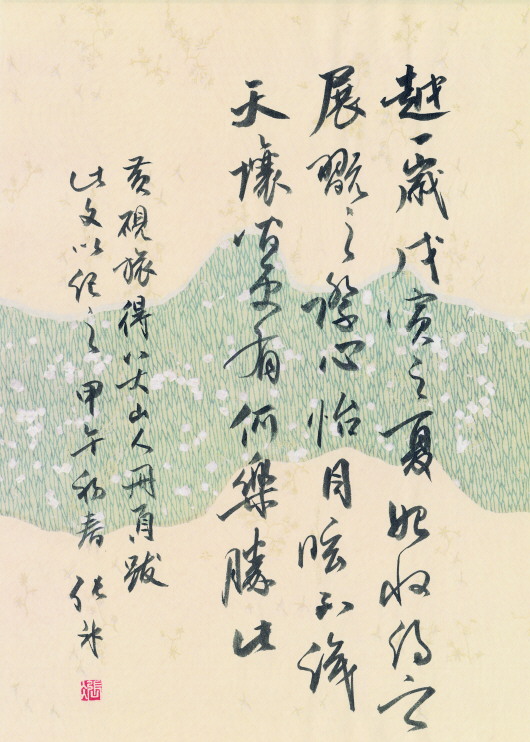 越一歳戊寅之夏始收得之
展翫之際心怡目眩不識
天壤間更有何樂勝此
黃硯旅得八大山人冊頁跋
此文以紀之甲午初春 張